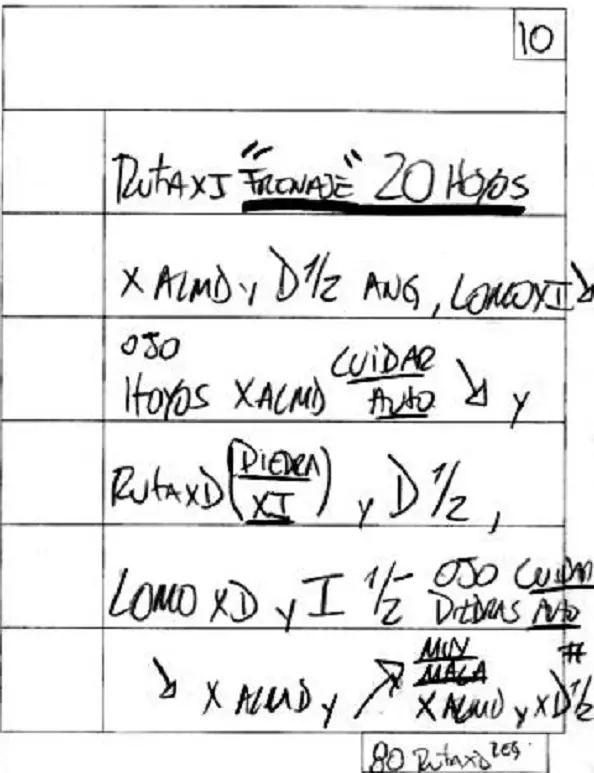 10
RUTA X I "FRENAJE" 20 HOYOS
X ALMD y D 1/2 ANG, LOMO X I ↘
OJO HOYOS X ALMD CUIDAR AUTO ↘ y
RUTA X D (PIEDRA X I) y D 1/2,
LOMO X D y I 1/2- OJO PIEDRAS CUIDAR AUTO
↘ X ALMD y ↗ X MUY MALA X ALMD y X D 1/2 #
80 RUTA X D